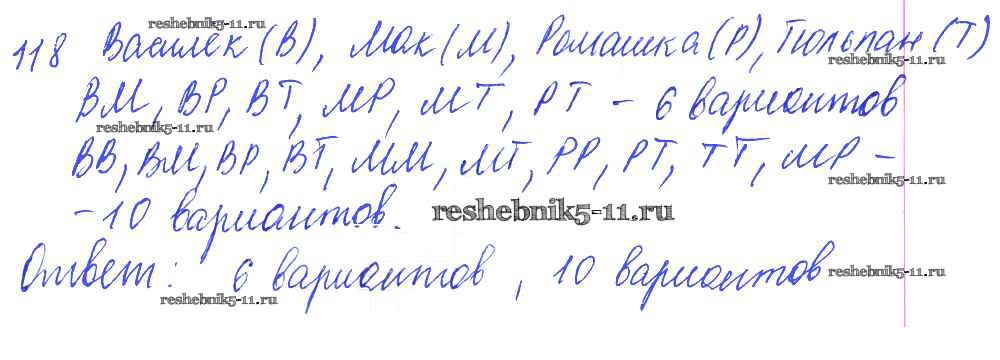 reshebnik5-11.ru
118 Василёк (В), Мак (М), Ромашка (Р), Тюльпан (Т)
reshebnik5-11.ru
ВМ, ВР, ВТ, МР, МТ, РТ – 6 вариантов
reshebnik5-11.ru
ВВ, ВМ, ВР, ВТ, ММ, МТ, РР, РТ, ТТ, МР –
reshebnik5-11.ru
– 10 вариантов. reshebnik5-11.ru
Ответ: 6 вариантов, 10 вариантов
reshebnik5-11.ru
reshebnik5-11.ru